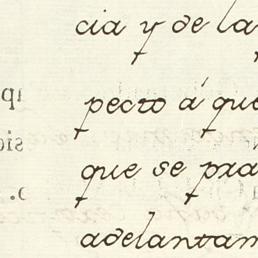 cia y de la
pecto á que
que se pra
adelantam